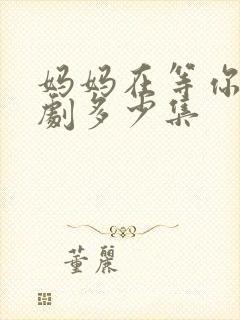 妈妈在等你
劇多少集
董麗